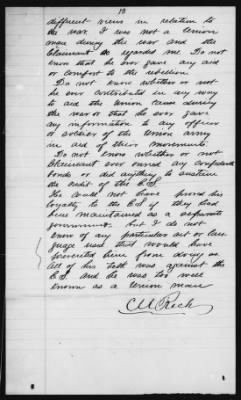 10
different views in relation to
the war. I was not a Union
man during the war and the
Claimant so regarded me. Do not
know that he ever gave any aid
or comfort to the rebellion.
Do not know whether or not
he ever contributed in any way
to aid the Union cause during
the war or that he ever gave
any information to any officer
or soldier of the Union army
in aid of their movements.
Do not know whether or not
Claimant ever owned any confederate
bonds or did anything to sustain
the credit of the C.S.
He could not have proved his
loyalty to the C.S. if they had
been maintained as a separate
government. but I do not
know of any particular act or lan-
guage used that would have
prevented him from doing so
All of his talk was against the
C.S. and he was too well
known as a Union man